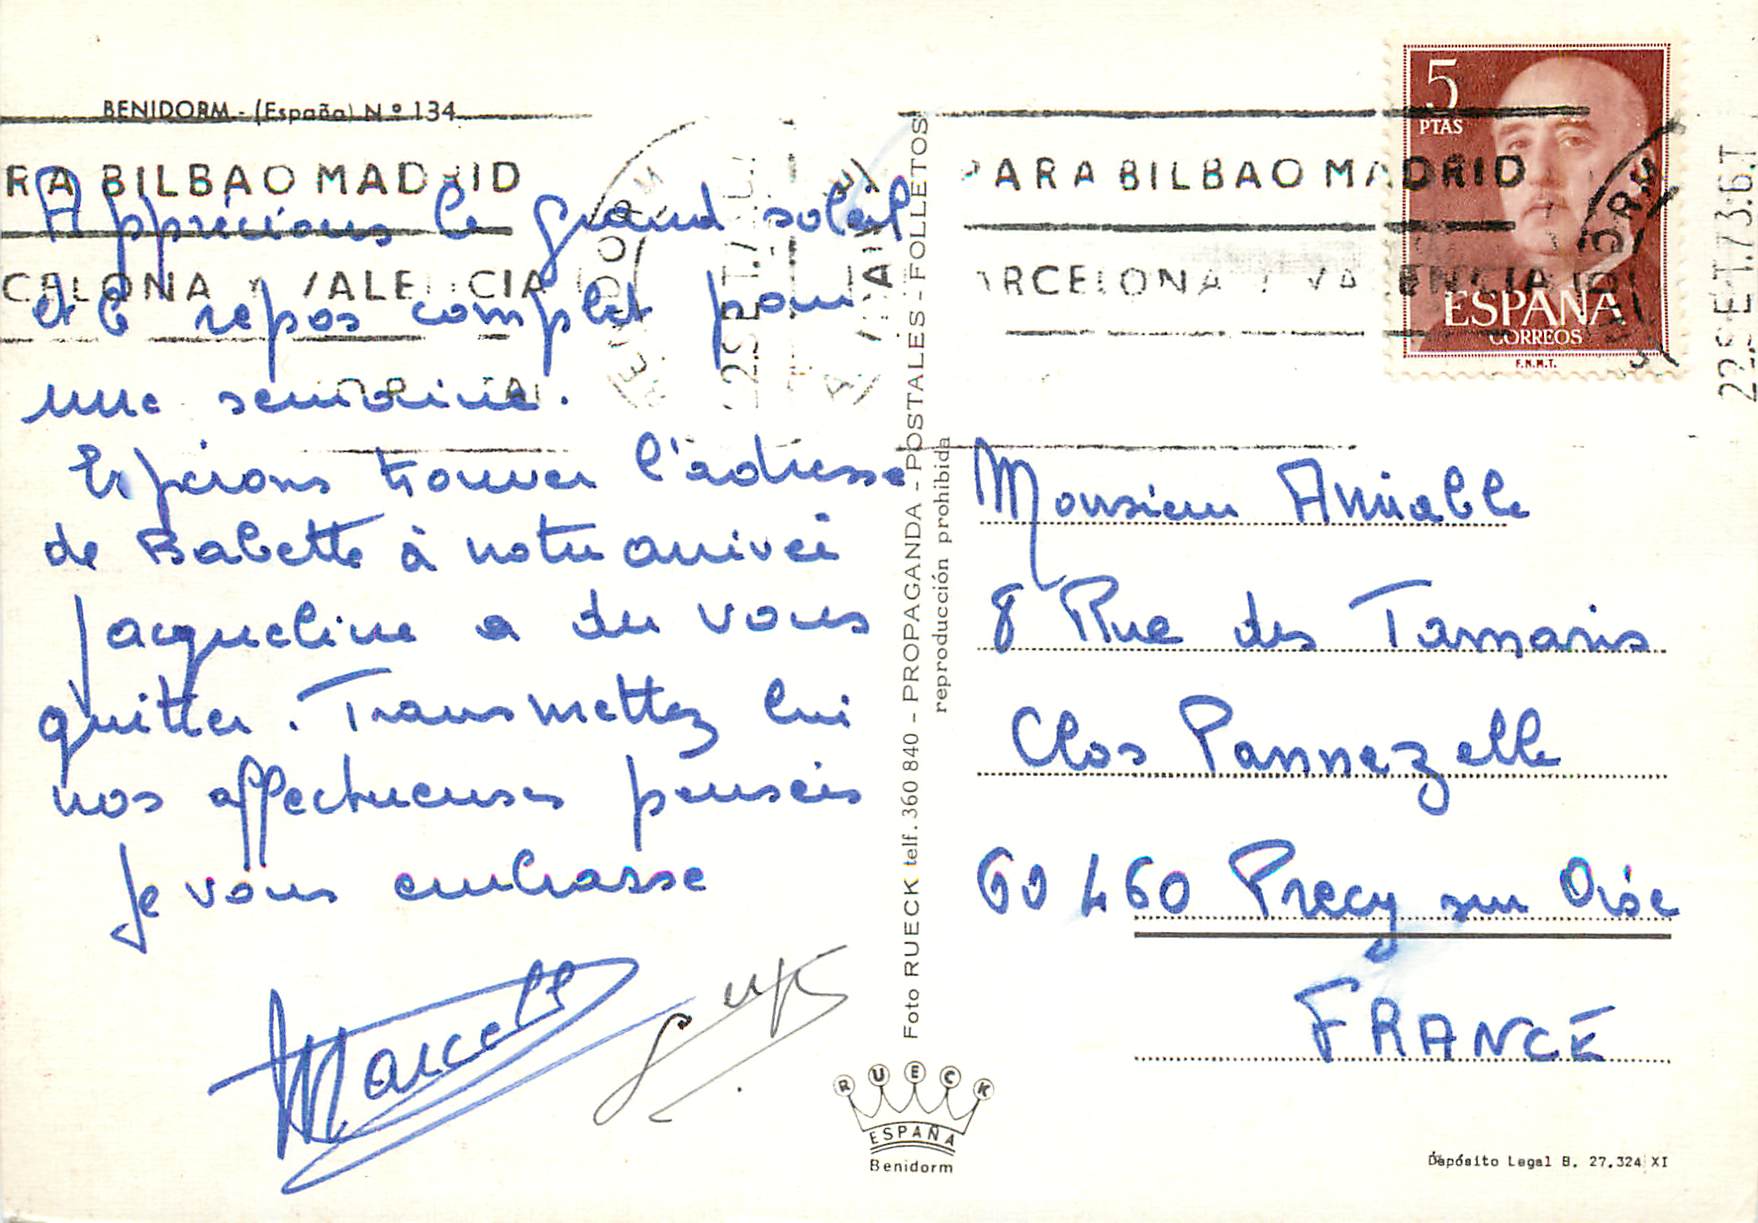 BENIDORM - (España) Nº 134
RA BILBAO MADRID
CELONA Y VALENCIA
Apprécions le grand soleil
et le repos complet pour
une semaine.
Espérons trouver l'adresse
de Babette à notre arrivée
Jacqueline a du vous
quitter. Transmettez lui
nos affectueuses pensées
Je vous embrasse
Marcel
Foto RUECK telf. 360 840 - PROPAGANDA - POSTALES - FOLLETOS
reproducción prohibida
RUECK
ESPAÑA
Benidorm
PARA BILBAO MADRID
ARCELONA Y VALENCIA
5
PTAS
ESPAÑA
CORREOS
F.N.M.T.
22 SET.73.6T
Monsieur Amiable
8 Rue des Tamaris
Clos Pannezelle
60460 Precy sur Oise
FRANCE
Depósito Legal B. 27.324 XI